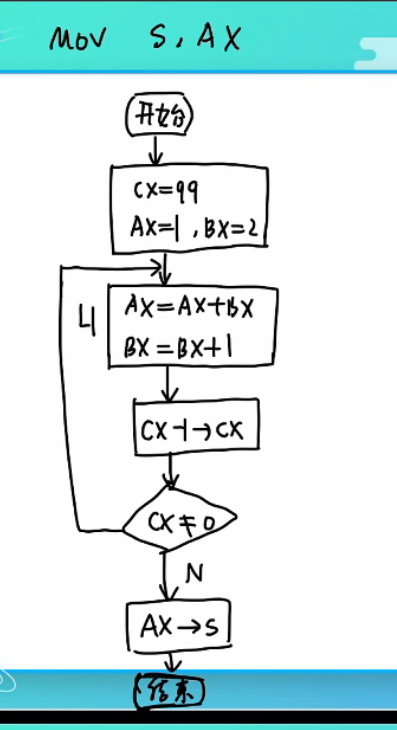 MOV S, AX
开始
CX=99
AX=1, BX=2
L1
AX=AX+BX
BX=BX+1
CX-1→CX
CX≠0
N
AX→S
结束